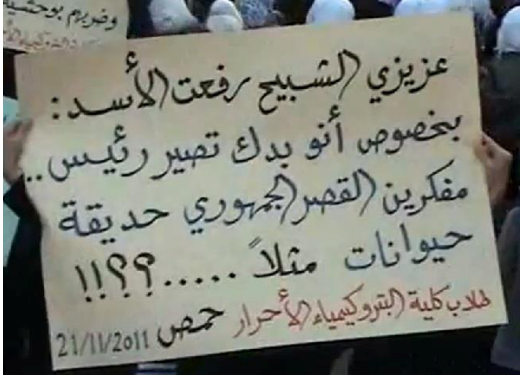 وضربهم بوحشية
عزيزي الشبيح رفعت الأسد:
بخصوص أنو بدك تصير رئيس..
مفكرين القصر الجمهوري حديقة
حيوانات مثلاً .....؟؟!!
طلاب كلية البتروكيمياء الأحرار حمص 21/11/2011